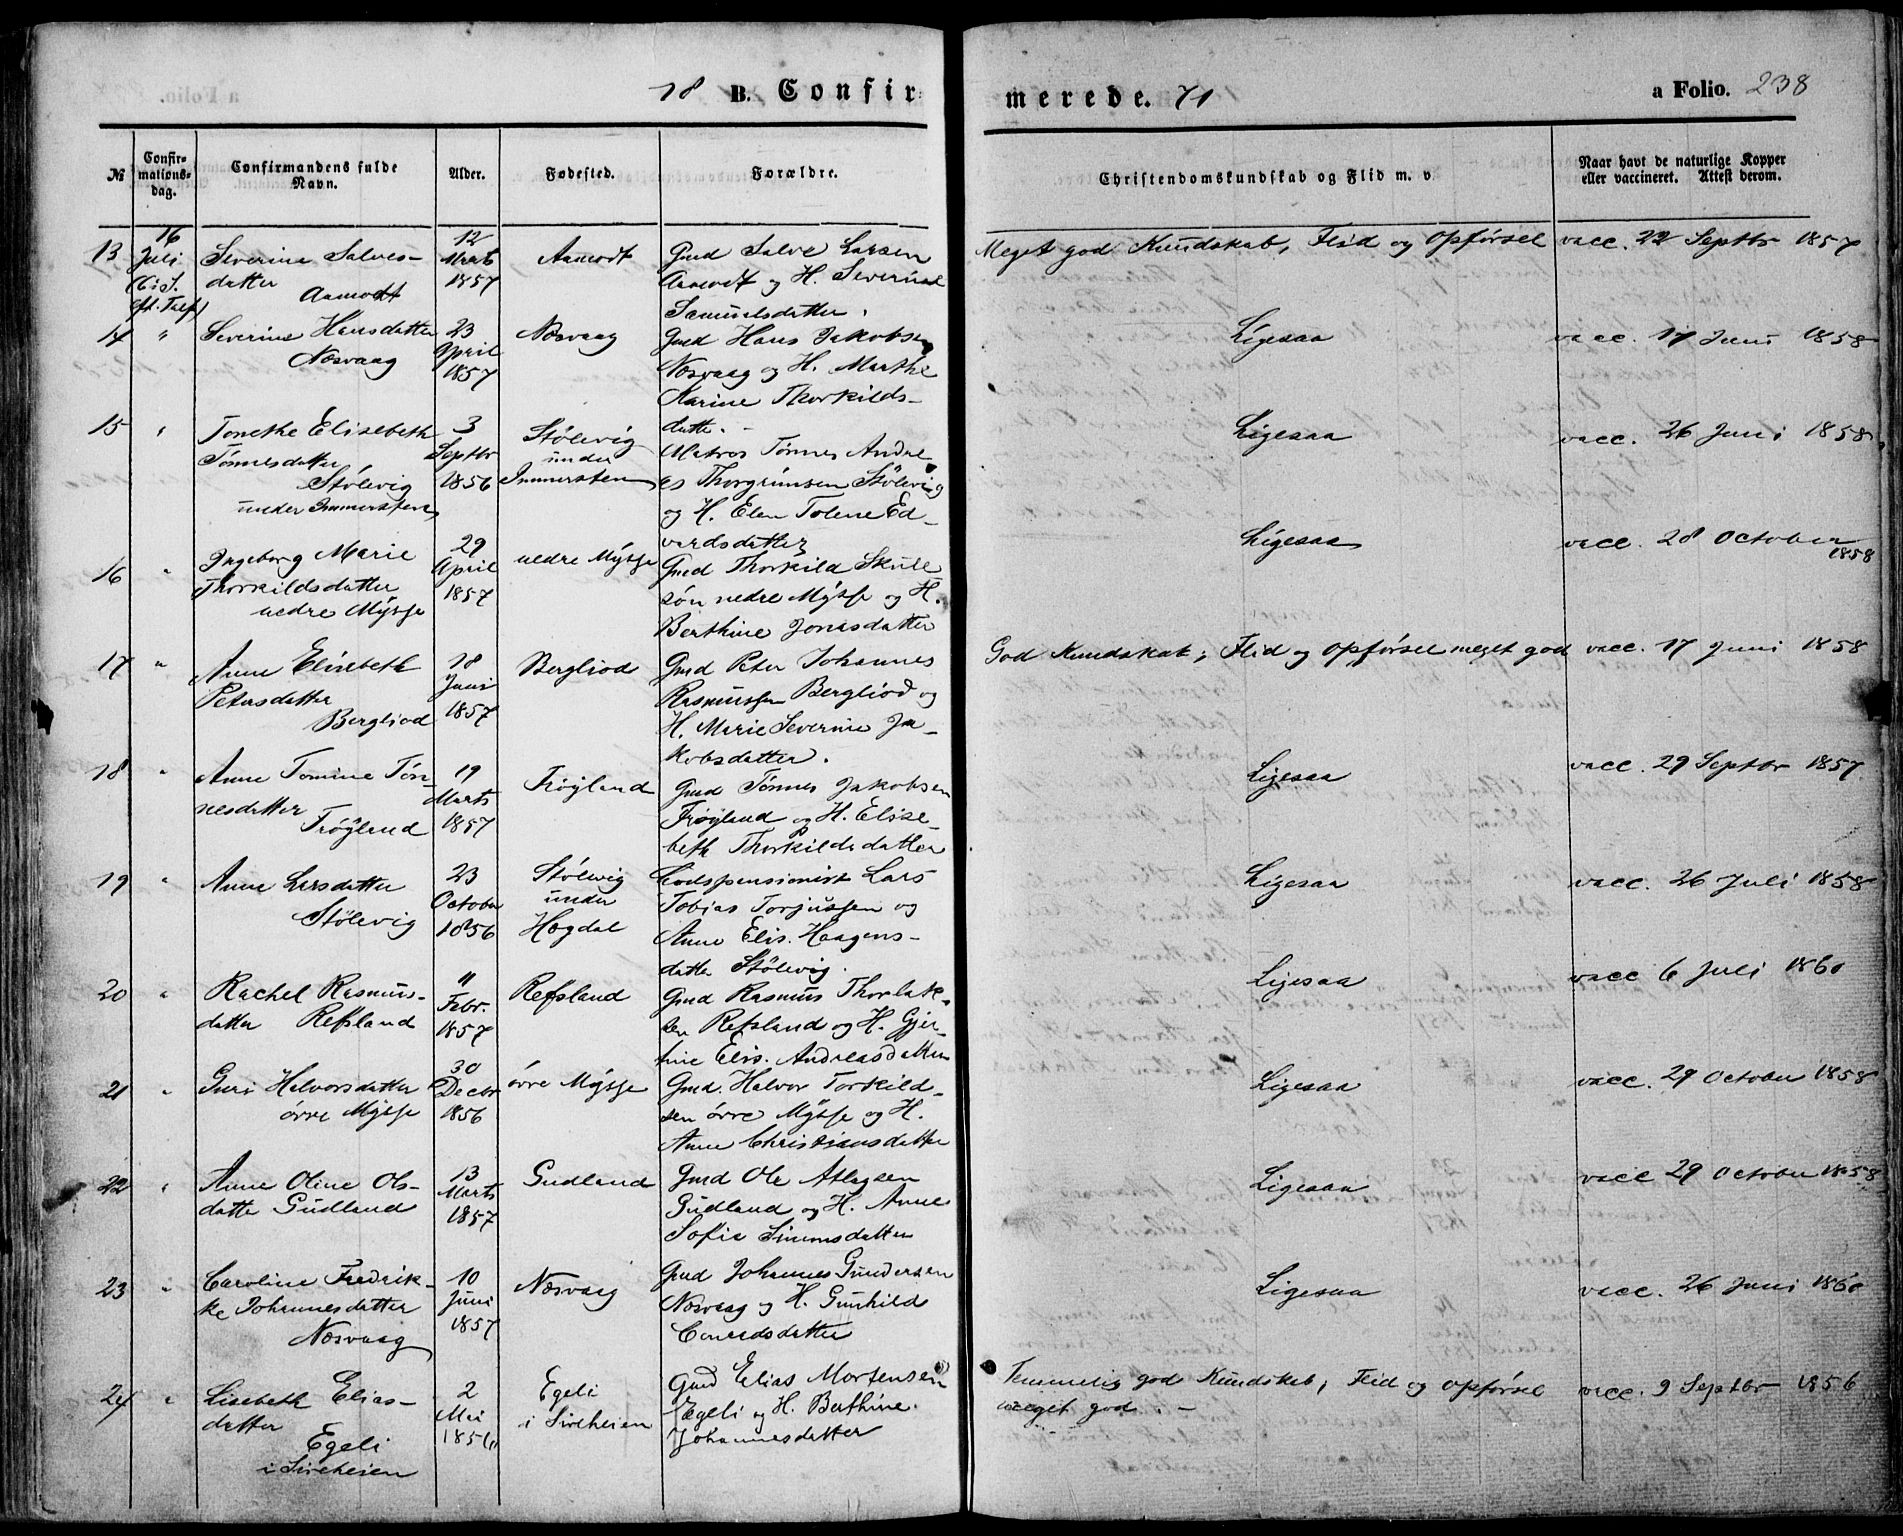 18 B. Confir-
merede. 71
a Folio. 238
№
Confir-
mations-
dag.
Confirmandens fulde
Navn.
Alder.
Fødested.
Forældre.
Christendomskundskab og Flid m. v.
Naar havt de naturlige Kopper
eller vaccineret. Attest derom.
13
16
Juli
Severine Salves-
datter
Aamodt
12
Marts
1857
Aamodt
Gmd Salve Larsen
Aamodt og H. Severine
Samuelsdatter.
Meget god Kundskab, Flid og Opførsel
vacc. 22 Septbr 1857
14
"
Severine Hansdatter
Nesvaag
23
April
1857
Nesvaag
Gmd Hans Jakobsen
Nesvaag og H. Marthe
Karine Thorkilds-
datter.
Ligesaa
vacc. 17 Juni 1858
15
"
Tonethe Elisebeth
Tønnesdatter
Stølevig
under Immersteen
3
Septbr
1856
Stølevig
under
Immersteen
Matros Tønnes Andre
as Thorgrimsen Stølevig
og H. Elen Tolene Ed-
vardsdatter
Ligesaa
vacc. 26 Juni 1858
16
"
Ingeborg Marie
Thorkildsdatter
nedre Mysse
29
April
1857
nedre Mysse
Gmd Thorkild Skule
søn nedre Mysse og H.
Berthine Jonasdatter
Ligesaa
vacc. 28 October
1858
17
"
Anne Elisebeth
Petersdatter
Bergliod
18
Juni
1857
Bergliod
Gmd Peter Johannes
Rasmussen Bergliod og
H. Marie Severine Ja-
kobsdatter.
God Kundskab, Flid og Opførsel meget god
vacc. 17 Juni 1858
18
"
Anne Tomine Tøn-
nesdatter
Frøyland
19
Marts
1857
Frøyland
Gmd Tønnes Jakobsen
Frøyland og H. Elise-
beth Thorkildsdatter
Ligesaa
vacc. 29 Septbr 1857
19
"
Anne Larsdatter
Stølevig
23
October
1856
Stølevig
under
Høgdal
Lodspensionist Lars
Tobias Torjussen og
Anne Elis. Haagens-
datter Stølevig.
Ligesaa
vacc. 26 Juli 1858
20
"
Rachel Rasmus-
datter Refsland
11
Febr.
1857
Refsland
Gmd Rasmus Thorlak-
sen Refsland og H. Gjer-
tine Elis. Andreasdatter
Ligesaa
vacc 6 Juli 1860
21
"
Guri Halvorsdatter
øvre Mysse
30
Decbr
1856
øvre Mysse
Gmd. Halvor Torkild-
sen øvre Mysse og H.
Anne Christiansdatter
Ligesaa
vacc. 29 October 1858
22
"
Anne Oline Ols-
datter Gudland
13
Marts
1857
Gudland
Gmd Ole Atlagsen
Gudland og H. Anne
Sofie Simonsdatter
Ligesaa
vacc 29 October 1858
23
"
Caroline Fredrik-
ke Johannesdatter
Nesvaag
10
Juni
1857
Nesvaag
Gmd Johannes Gundersen
Nesvaag og H. Gunhild
Conradsdatter
Ligesaa
vacc. 26 Juni 1860
24
"
Lisebeth Elias-
datter
Egeli
i Sireheien
2
Mai
1856
Egeli
i Sireheien
Gmd Elias Mortensen
Egeli og H. Berthine
Johannesdatter
Temmelig god Kundskab, Flid og Opførsel
meget god. -
vacc. 9 Septbr 1856